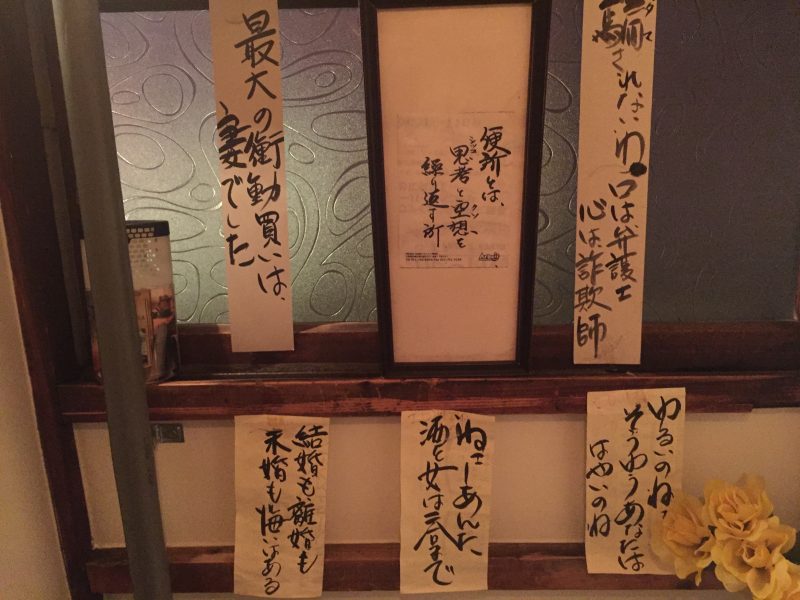 騙されないわ。口は弁護士
ダマ
心は詐欺師
便所とは、
思考と空想を
シッコ
クソー
繰り返す所
最大の衝動買いは、
妻でした
ゆるいのねェ
そうゆうあなたは
はやいのね
ねェーあんた
酒と女は二合まで
結婚も離婚も
未婚も悔いある